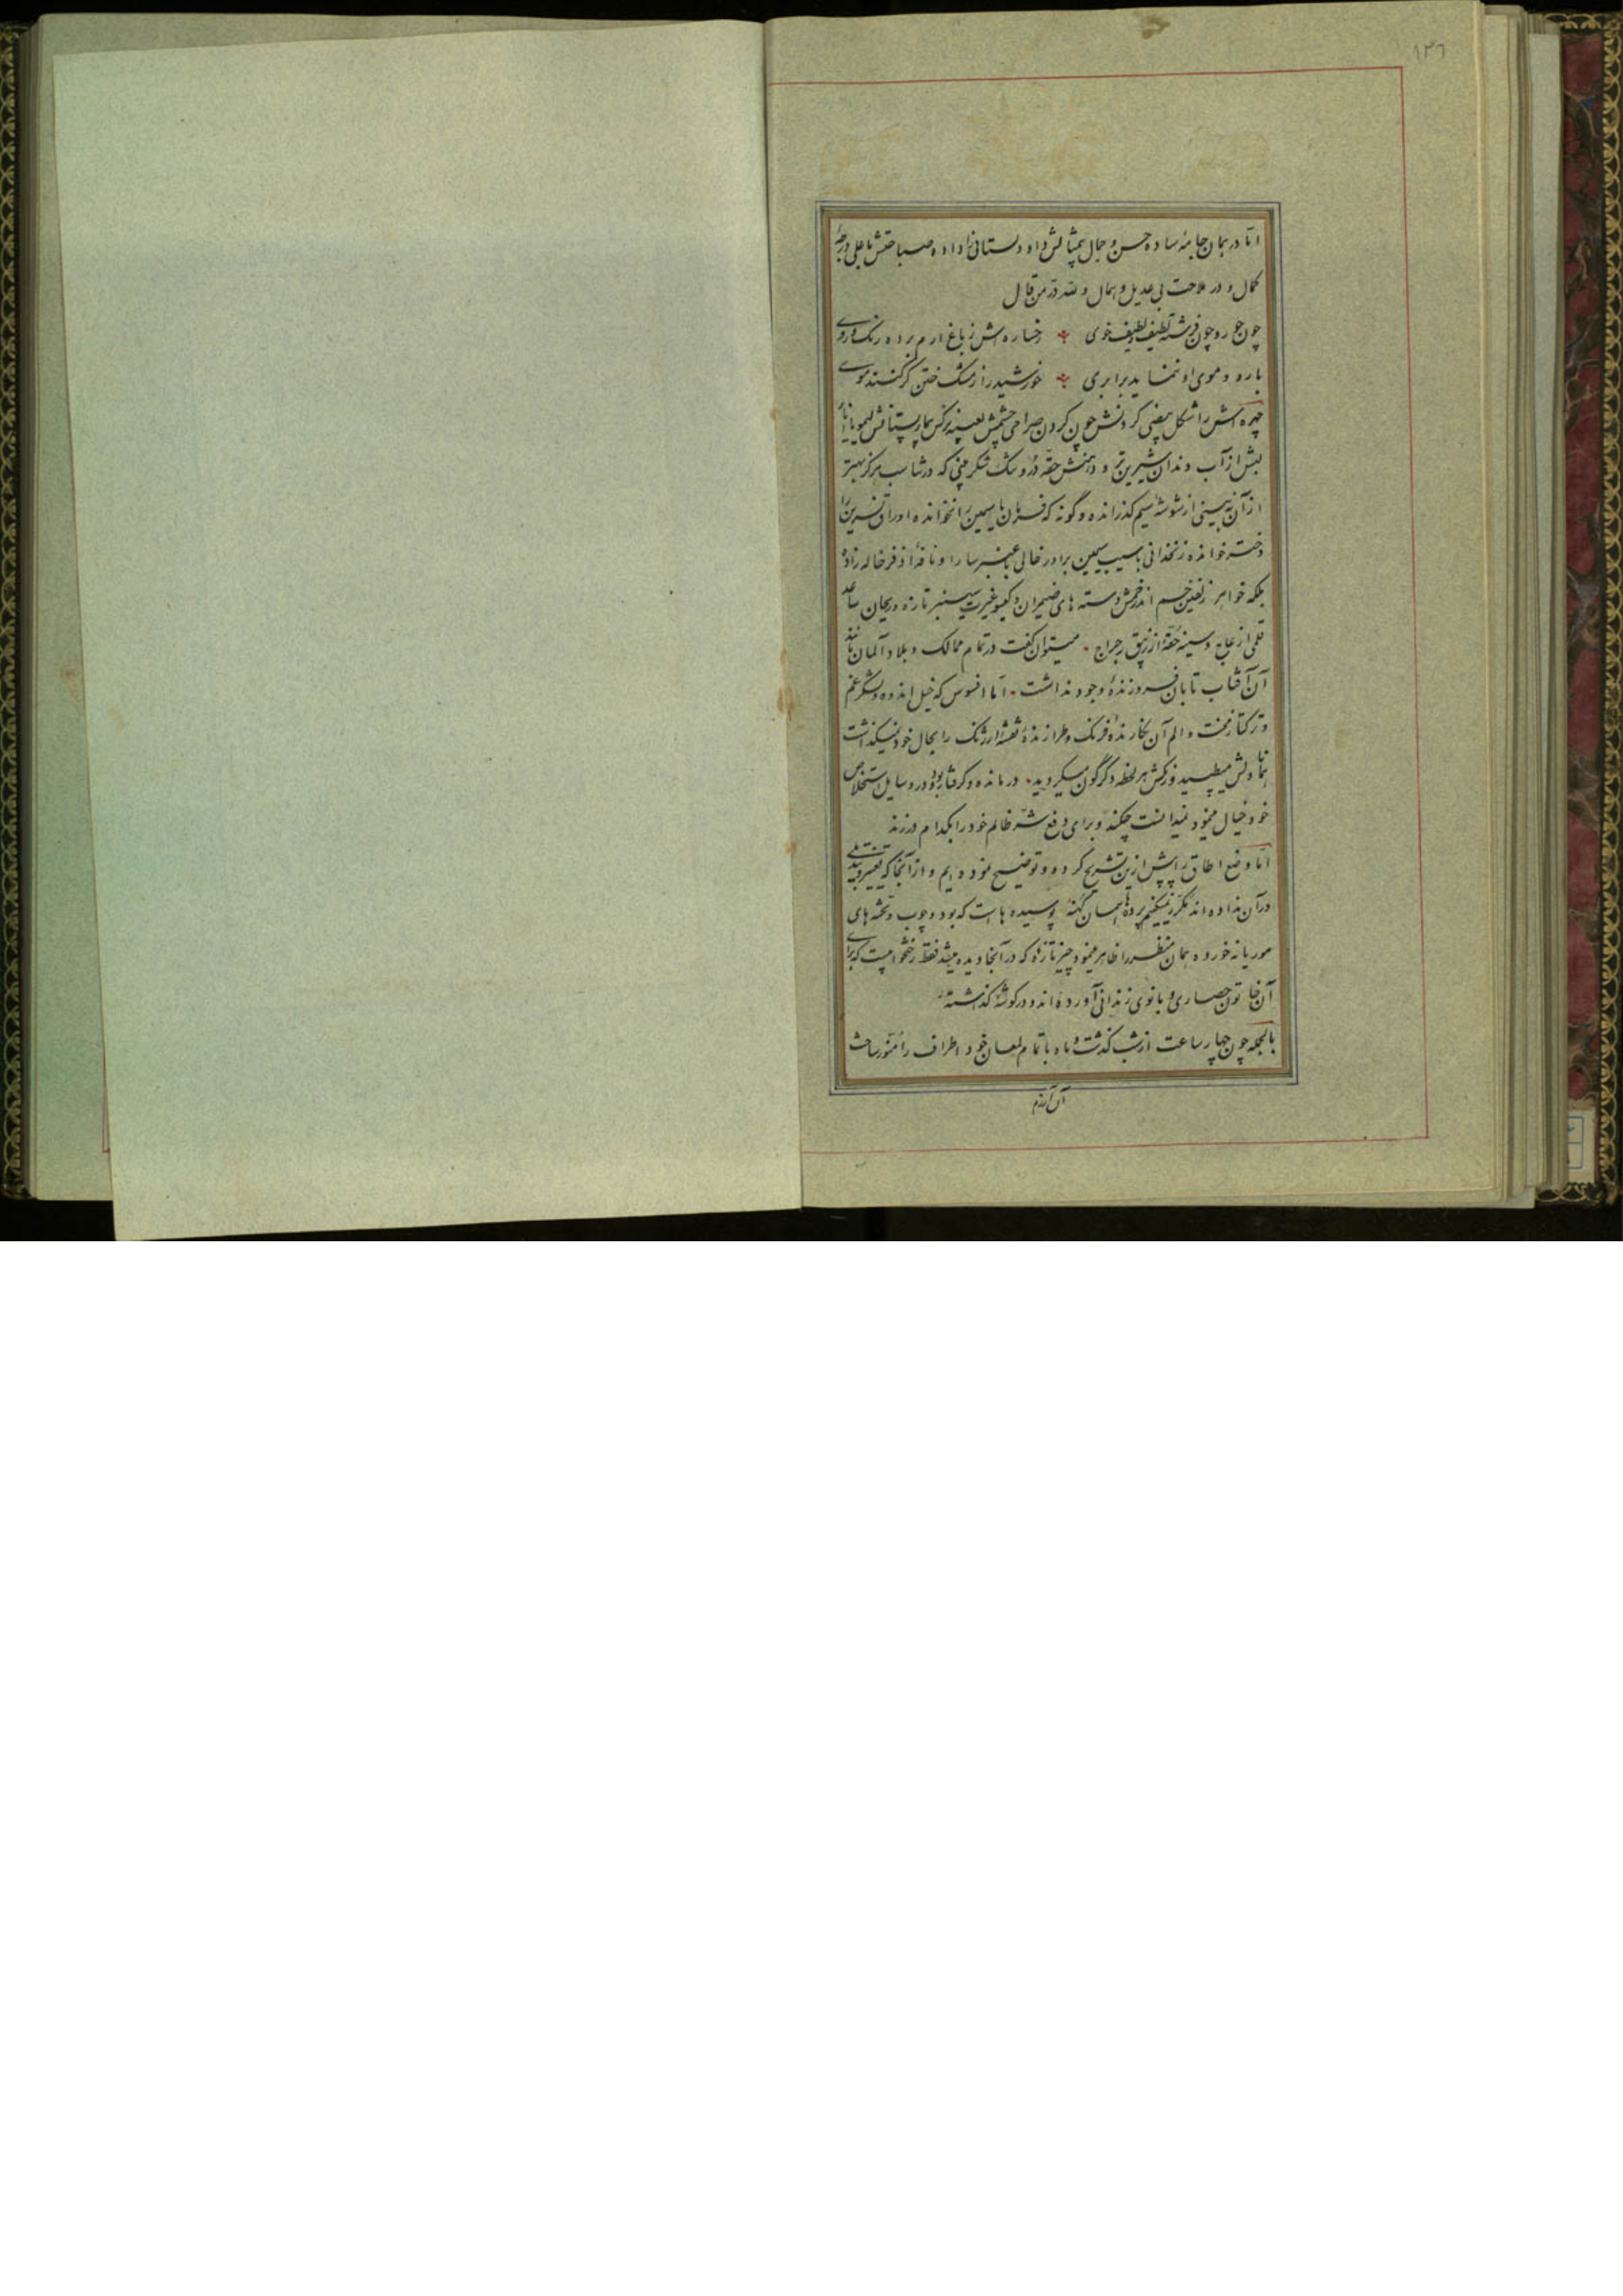 ۱۳٦
اما در همان جامهٔ ساده حسن و جمال بیمثالش داد دلستانی را داده صباحتش با علی درجهٔ
کمال و در ملاحت بی عدیل و همال و لله در من قال
چون حور و چون فرشته لطیف و لطیف خوی رخساره اش ز باغ ارم برده رنگ و روی
با رو و موی او ننماید برابری خورشید را ز مشک ختن گر کنند موی
چهره اش را شکل بیضی گردنش چون گردن صراحی چشمش بعینه نرگس بیمار پستانش لیمو یا نار
لبش از آب دندان شیرین تر و دهنش حقهٔ در و تنگ شکر بینی که در تناسب هرگز بهتر
از آن نه بینی از شوشهٔ سیم گذرانده و گونه که فرمان یاسمین را نخوانده اوراق نسرین را
دختر خوانده زنخدانی با سیب سیمین برادر خالی با عنبر سارا و نافهٔ اذفر خاله زاده
بلکه خواهر زلفین خم اندر خمش دسته های ضیمران و گیسو غیرت سیسنبر تازه و ریحان ساعد
قلمی از عاج و سینه حقهٔ از زیبق رجراج میتوان گفت در تمام ممالک و بلاد آلمان مانند
آن آفتاب تابان فروزندهٔ وجود نداشت اما افسوس که خیل اندوه و لشکر غم
و ترکتاز محنت و الم آن نگارندهٔ فرنگ و طرازندهٔ نقشهٔ ارژنگ را بحال خود نمیگذاشت
همانا دلش میطپید و رنگش هر لحظه دگرگون میگردید درمانده و گرفتار بود در وسایل استخلاص
خود خیال مینمود نمیدانست چکند و برای دفع شر ظالم خود را بکدام در زند
اما وضع اطاق را پیش ازین تشریح کرده و توضیح نموده ایم و از آنجا که تغییر و تبدیلی
در آن نداده اند مکرر نمیکنیم پرده ها همان کهنه پوسیده هاست که بود و چوب و تخته های
موریانه خورده همان منظر را ظاهر مینمود چیز تازهٔ که در آنجا دیده میشد فقط رختخوابیست که برای
آن خاتون حصاری و بانوی زندانی آورده اند و در گوشهٔ گذاشته
بالجمله چون چهار ساعت از شب گذشت و ماه با تمام لمعان خود اطراف را منور ساخت
آن آندم